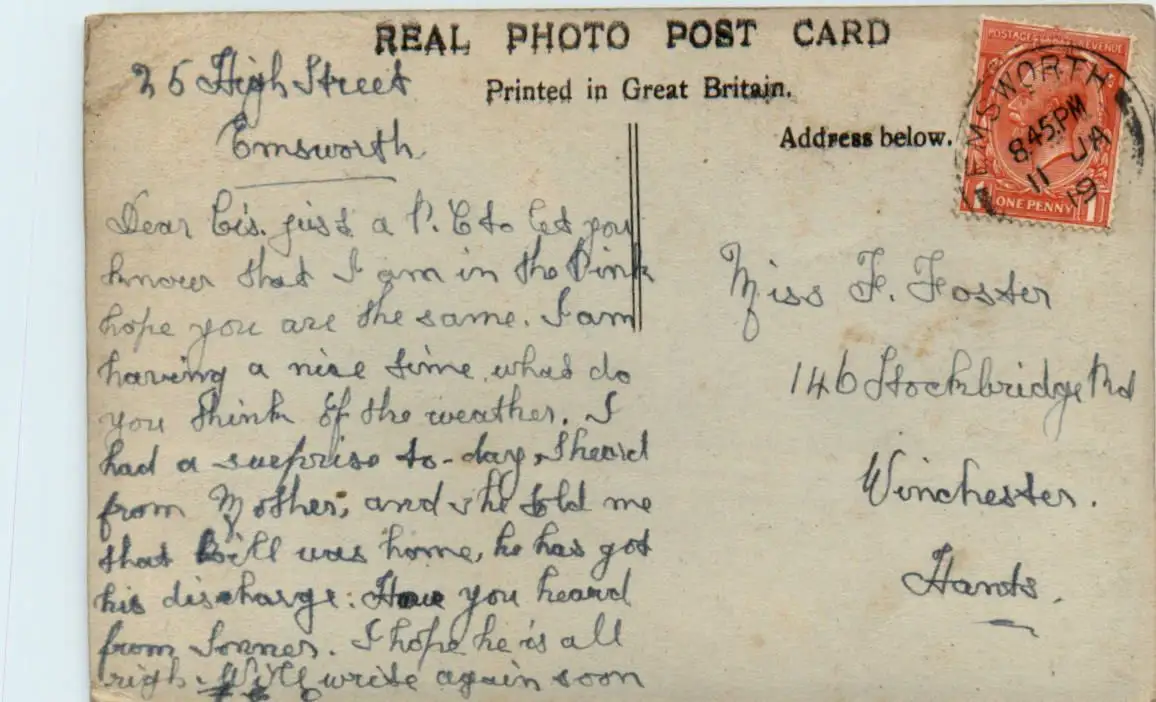 REAL PHOTO POST CARD
Printed in Great Britain.
Address below.
25 High Street
Emsworth
Dear Cis. just a P.C to let you
know that I am in the Pink
hope you are the same. I am
having a nice time. what do
you think of the weather. I
had a surprise to-day, I heard
from Mother, and she told me
that Bill was home, he has got
his discharge. Have you heard
from Sonner. I hope he is all
righ. Will write again soon
POSTAGE REVENUE
ONE PENNY
1 1
EMSWORTH
8.45 PM
11 JA
19
Miss F. Foster
146 Stockbridge Rd
Winchester.
Hants.